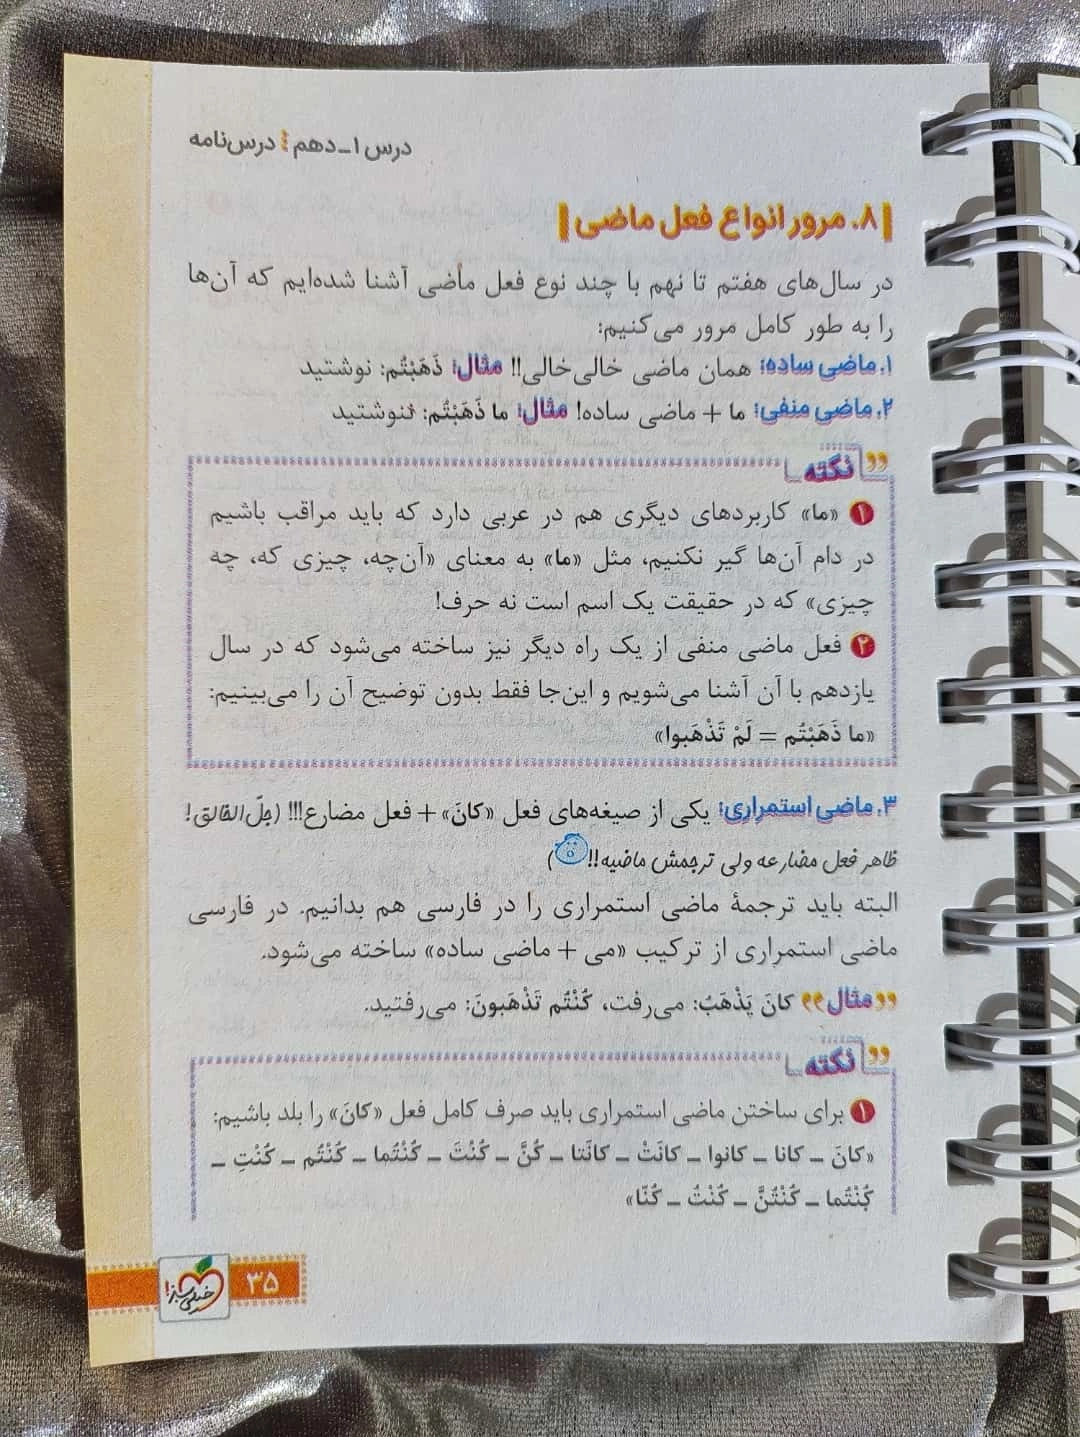 درس ۱ـ دهم درس‌نامه
۸. مرور انواع فعل ماضی
در سال‌های هفتم تا نهم با چند نوع فعل ماضی آشنا شده‌ایم که آن‌ها
را به طور کامل مرور می‌کنیم:
۱. ماضی ساده: همان ماضی خالی‌خالی!! مثال: ذَهَبْتُم: نوشتید
۲. ماضی منفی: ما + ماضی ساده! مثال: ما ذَهَبْتُم: ننوشتید
نکته
۱ «ما» کاربردهای دیگری هم در عربی دارد که باید مراقب باشیم
در دام آن‌ها گیر نکنیم، مثل «ما» به معنای «آن‌چه، چیزی که، چه
چیزی» که در حقیقت یک اسم است نه حرف!
۲ فعل ماضی منفی از یک راه دیگر نیز ساخته می‌شود که در سال
یازدهم با آن آشنا می‌شویم و این‌جا فقط بدون توضیح آن را می‌بینیم:
«ما ذَهَبْتُم = لَمْ تَذْهَبوا»
۳. ماضی استمراری: یکی از صیغه‌های فعل «کانَ» + فعل مضارع!!! (جلّ الخالق!
ظاهر فعل مضارعه ولی ترجمش ماضیه!!)
البته باید ترجمهٔ ماضی استمراری را در فارسی هم بدانیم. در فارسی
ماضی استمراری از ترکیب «می + ماضی ساده» ساخته می‌شود.
مثال کانَ یَذْهَبُ: می‌رفت، کُنْتُم تَذْهَبونَ: می‌رفتید.
نکته
۱ برای ساختن ماضی استمراری باید صرف کامل فعل «کانَ» را بلد باشیم:
«کانَ ـ کانا ـ کانوا ـ کانَتْ ـ کانَتا ـ کُنَّ ـ کُنْتَ ـ کُنْتُما ـ کُنْتُم ـ کُنْتِ ـ
کُنْتُما ـ کُنْتُنَّ ـ کُنْتُ ـ کُنّا»
خیلی سبز
۳۵